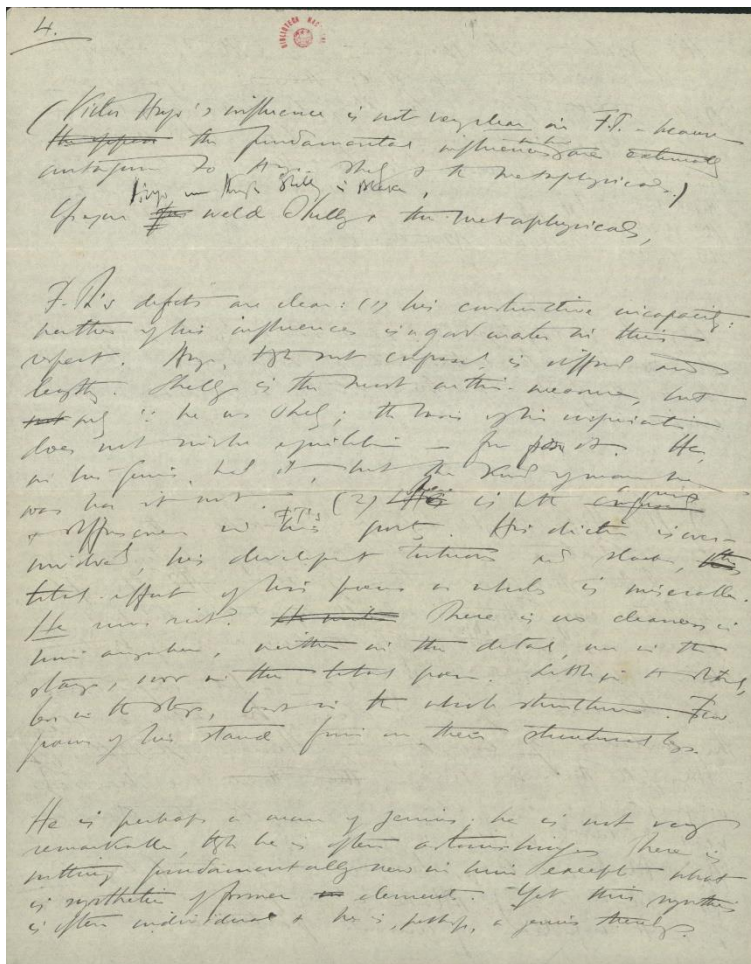 4.
BIBLIOTECA
(Victor Hugo's influence is not very clear in F.T. — because
the fundamental influences are
to Hugo. Shelley & the metaphysicals.)
Hugo Shelley is
weld Shelley & the metaphysicals,
F. Th's defects are clear: (1) his constructive incapacity:
neither of his influences is a good master in this
respect. Hugo, tho' not confused, is diffused and
lengthy. Shelley is the most within-measure, but
only :: he was Shelley; the basis of his inspiration
does not equilibrium — far from it. He,
in his genius, had it, but the kind of man he
was has it not. — (2) is both
& diffuseness in F.T.'s poetry. His diction is over-
involved, his development tortuous and slow, the
total effect of his poems as wholes is miserable.
He There is no clearness in
him anywhere, neither in the detail, nor in the
stanza, nor in the total poem. in the detail,
less in the stanza, least in the whole structure. Few
poems of his stand firm on their structural legs.
He is perhaps a man of genius. he is not very
remarkable, tho' he is often astonishing. There is
nothing fundamentally new in him except what
is synthetic of former elements. Yet this synthesis
is often individual & he is, perhaps, a genius thereby.